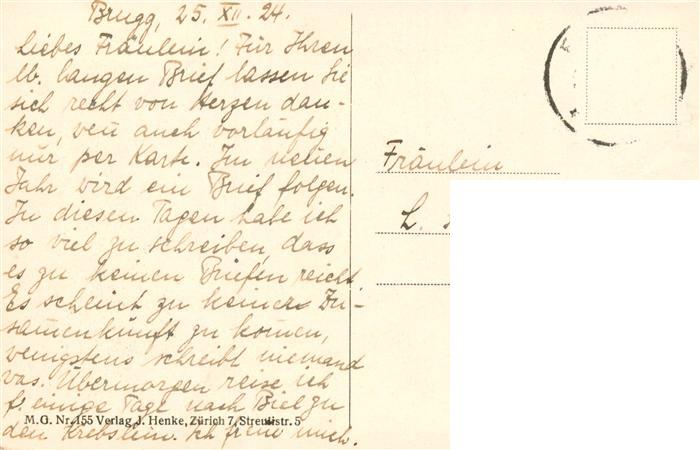 Brugg, 25. XII. 24.
Liebes Fräulein! Für Ihren
lb. langen Brief lassen Sie
sich recht von Herzen dan-
ken, wen auch vorläufig
nur per Karte. Im neuen
Jahr wird ein Brief folgen.
In diesen Tagen habe ich
so viel zu schreiben, dass
es zu keinen Briefen reicht.
Es scheint zu keiner Zu-
samenkunft zu komen,
wenigstens schreibt niemand
was. Übermorgen reise ich
f. einige Tage nach Biel zu
den Krebslein. Ich freue mich.
M.G. Nr. 155 Verlag J. Henke, Zürich 7, Streulistr. 5
Fräulein
L.